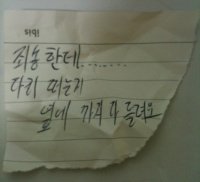 죄송한데........
다리 떠는지
옆에 까지 다 들려요